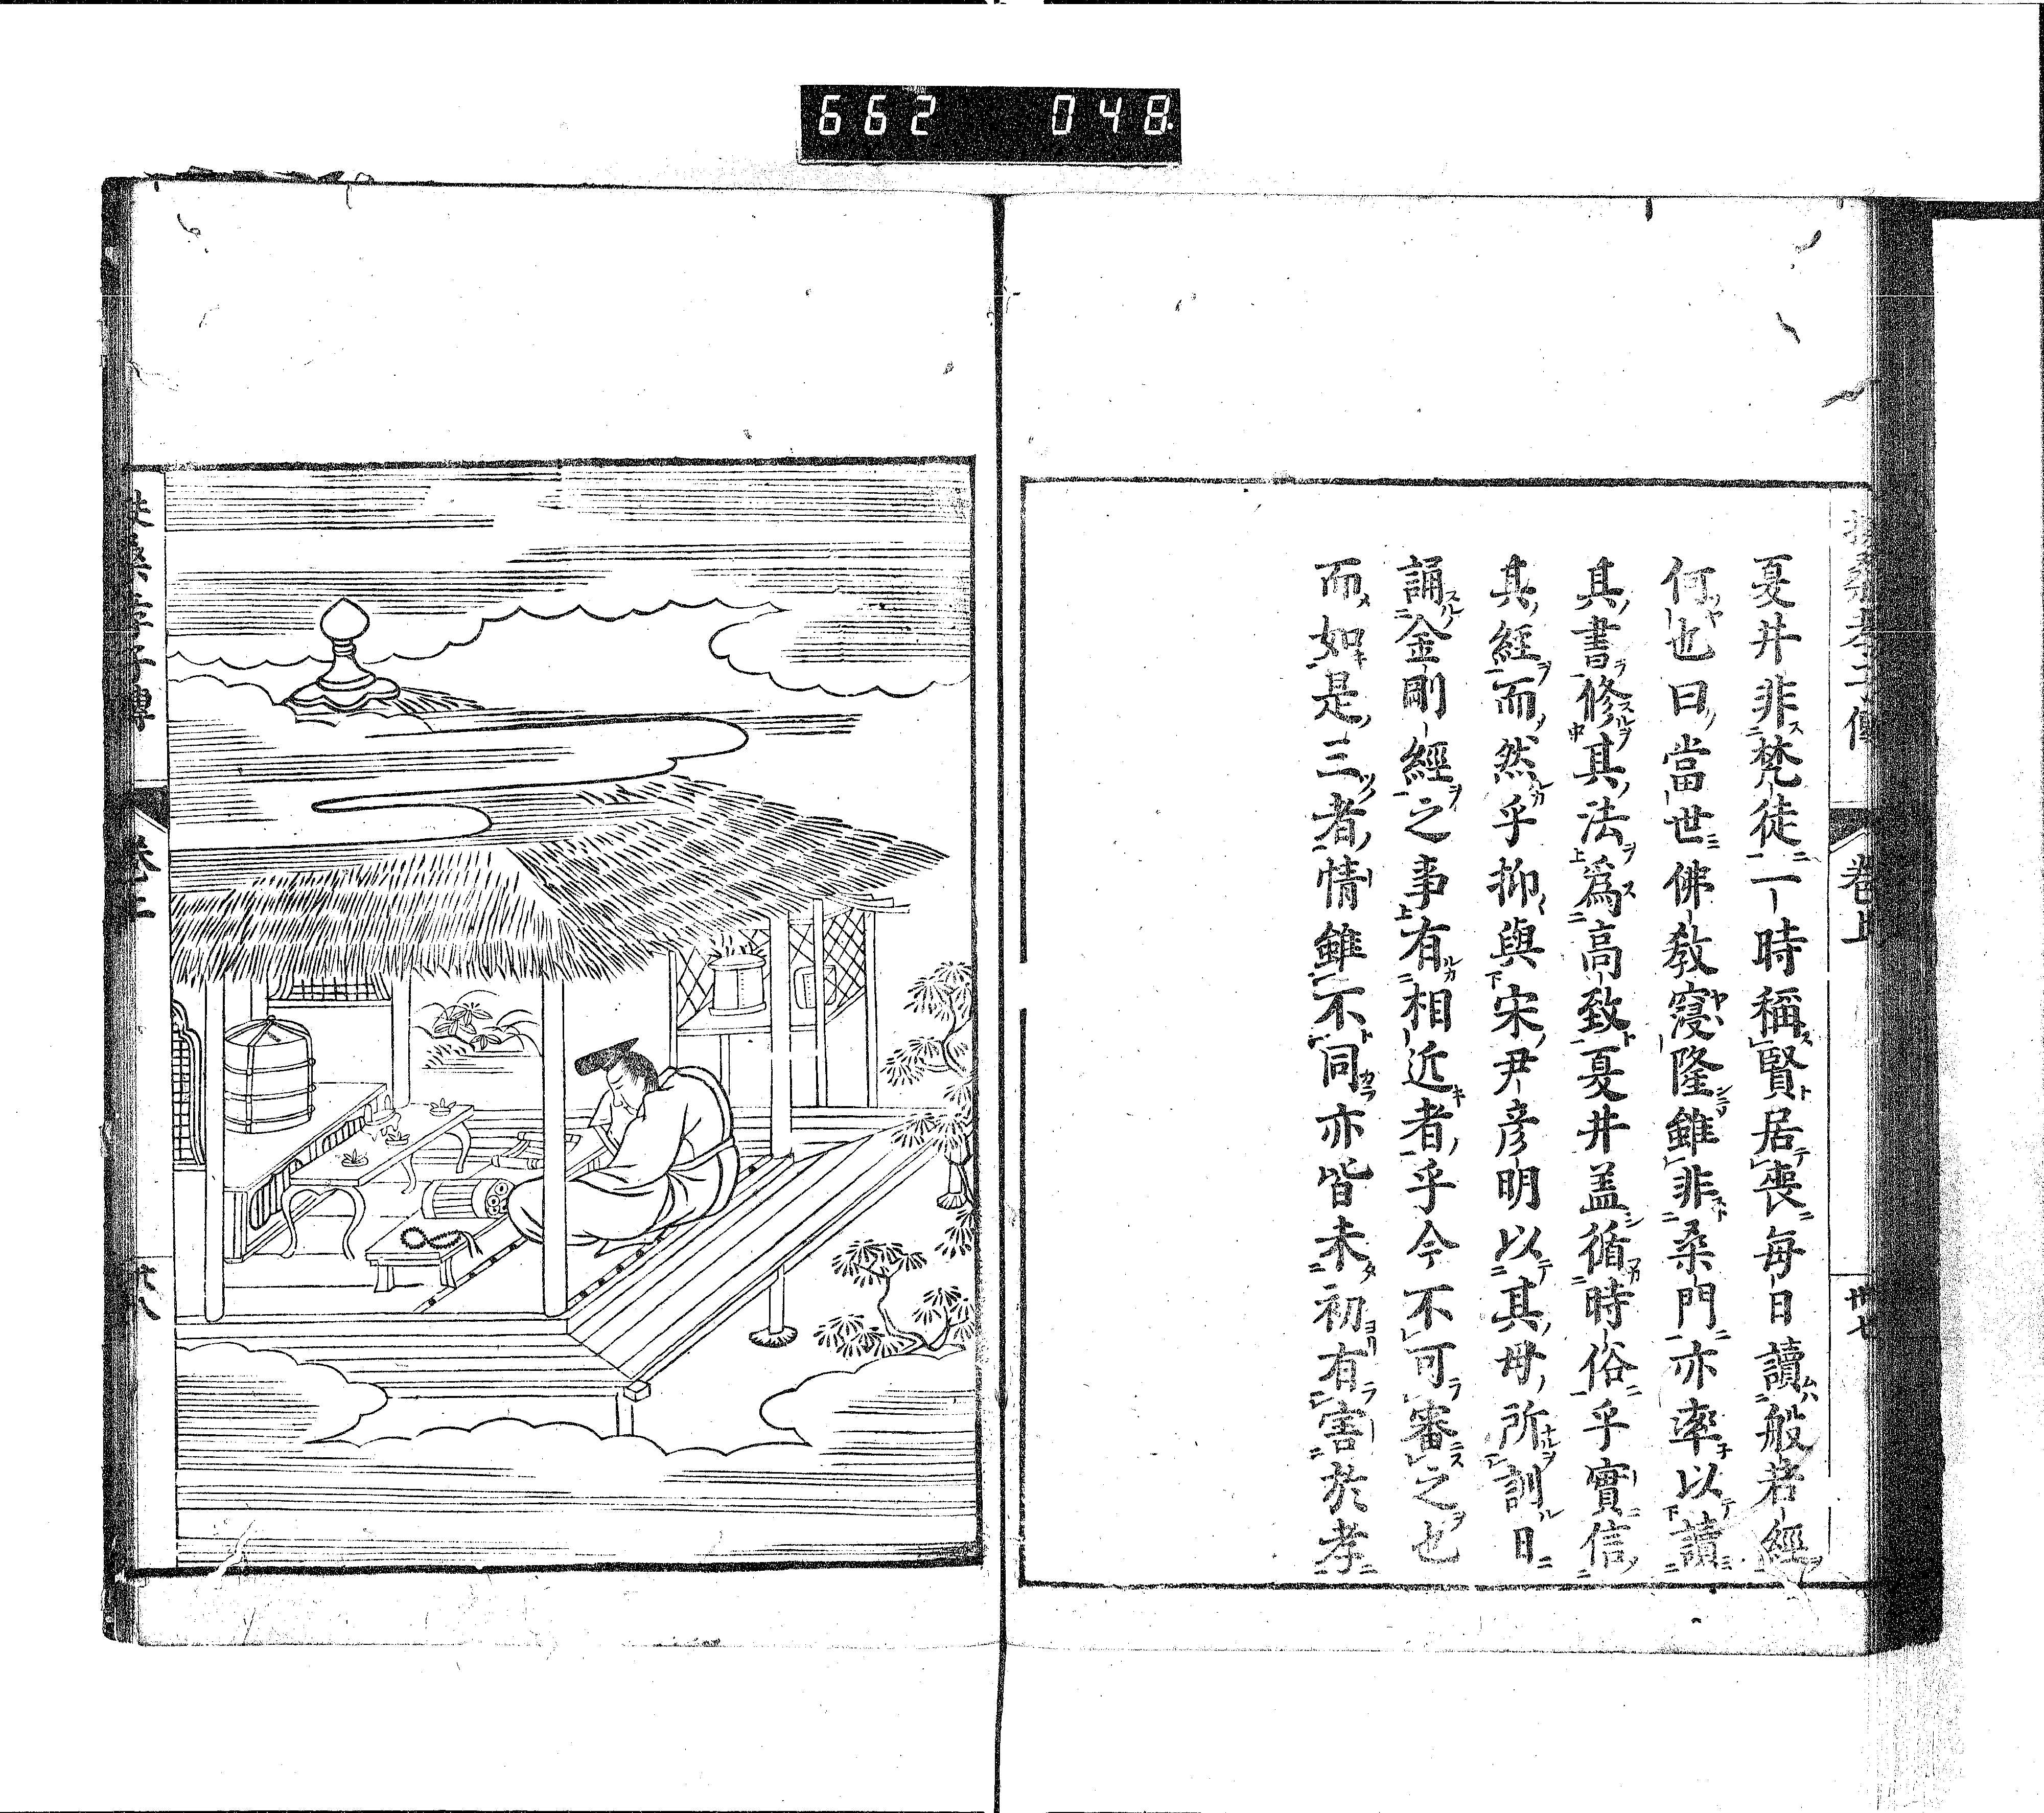 662 048
扶桑孝子傳 卷上 卅七
夏井非梵徒一時稱賢居喪每日讀般若經
何也曰當世佛教寖隆雖非桑門亦率以讀
其書修其法爲高致夏井盖循時俗乎實信
其經而然乎抑與宋尹彦明以其母所訓日
誦金剛經之事有相近者乎今不可審之也
而如是三者情雖不同亦皆未初有害於孝
扶桑孝子傳 卷上 卅八